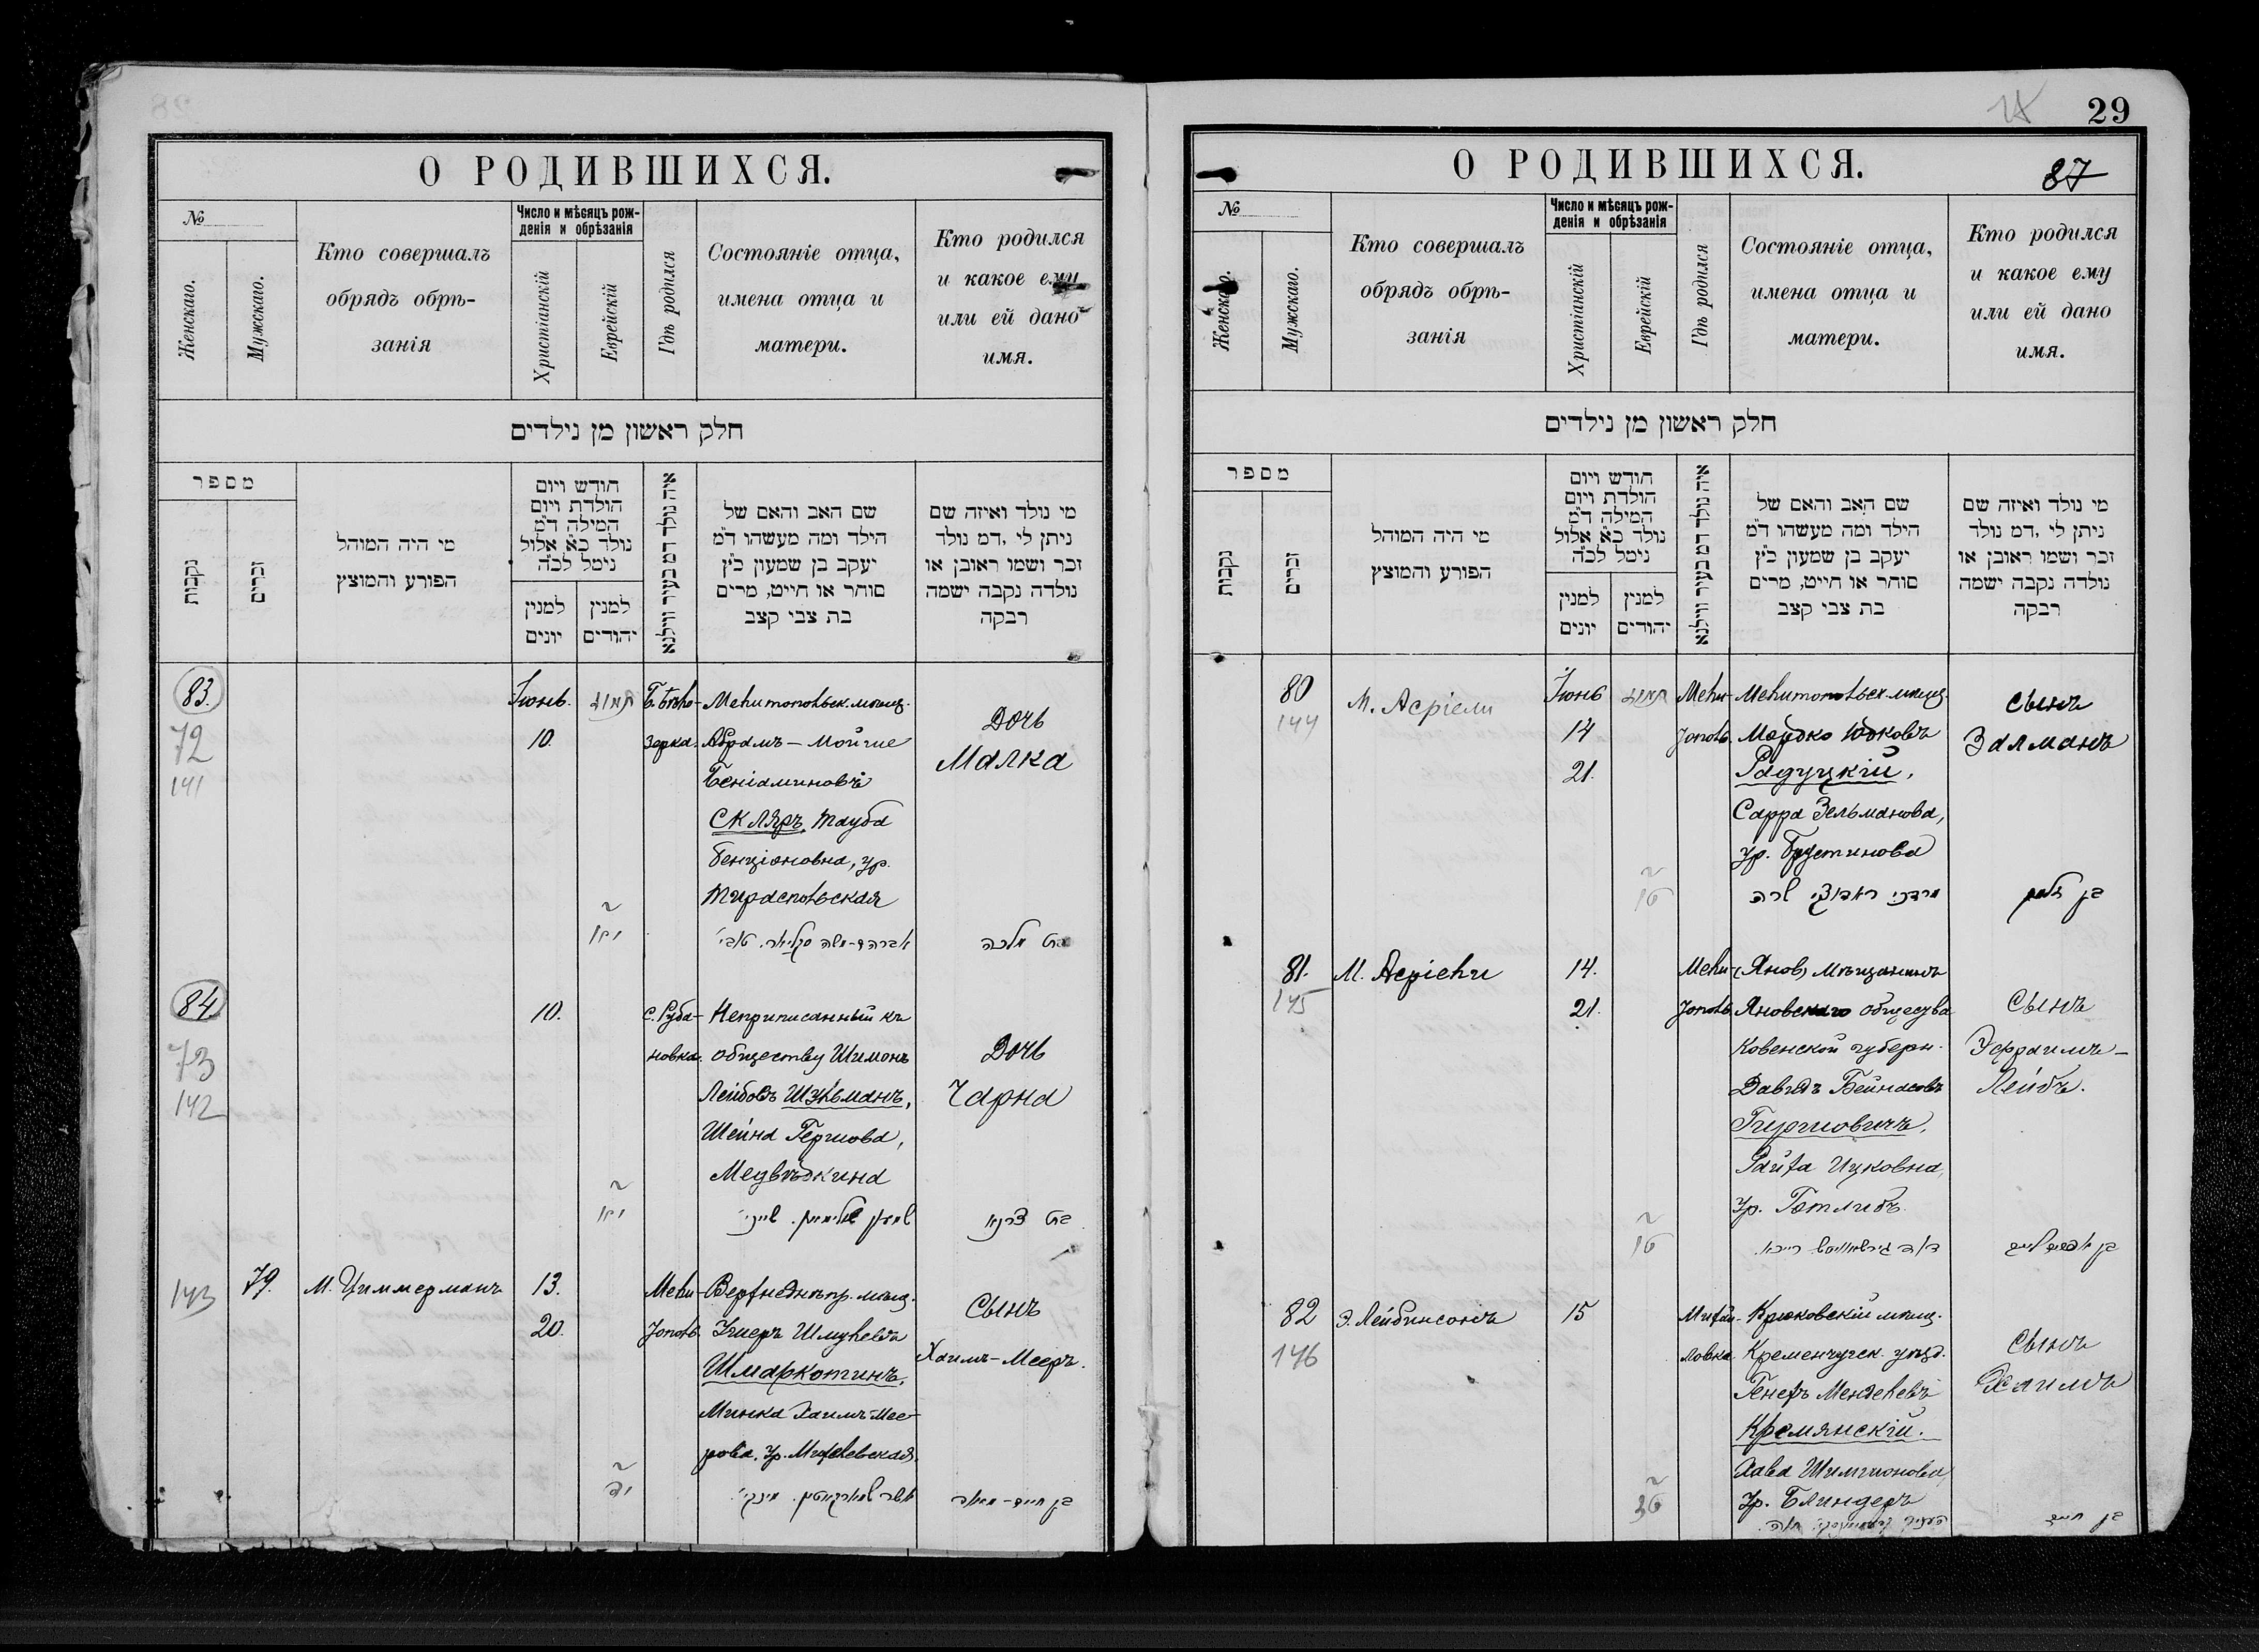 О РОДИВШИХСЯ.
№
Женскаго.
Мужскаго.
Кто совершалъ
обрядъ обрѣ-
занія
Число и мѣсяцъ рож-
денія и обрѣзанія
Христіанскій
Еврейскій
Гдѣ родился
Состояніе отца,
имена отца и
матери.
Кто родился
и какое ему
или ей дано
имя.
חלק ראשון מן נילדים
מספר
נקבות
זכרים
מי היה המוהל
הפורע והמוצץ
חודש ויום
הולדת ויום
המילה ד״מ
נולד כ״א אלול
נימל לכ״ה
למנין
יונים
למנין
יהודים
איה נולד דמ בעיר ווילנא
שם האב והאם של
הילד ומה מעשהו ד״מ
יעקב בן שמעון כ״ץ
סוחר או חייט, מרים
בת צבי קצב
מי נולד ואיזה שם
ניתן לי ,דמ נולד
זכר ושמו ראובן או
נולדה נקבה ישמה
רבקה
83.
72
141
Іюнь.
10.
תמוז
Б. Бѣло-
зерка.
Мелитопольск. мѣщ.
Абрамъ-Мойше
Беніаминовъ
Скляръ, Тауба
Бенціоновна, ур.
Тираспольская
אברהם-משה סקליאר. טובי׳
Дочь
Малка
בת מלכה
84.
73
142
10.
с. Руба-
новка.
Неприписанный къ
обществу Шимонъ
Лейбовъ Шульманъ,
Шейна Гершова,
Медвѣдкина
Дочь
Чарна
בת צרניא
143
79.
М. Циммерманъ
13.
20.
Мели-
тополь.
Верхнеднѣпр. мѣщ.
Ушеръ Шмулевъ
Шмаркотинъ,
Минка Хаимъ-Мее-
рова, ур.
Сынъ
Хаимъ-Мееръ.
בן חיים-מאיר
29
О РОДИВШИХСЯ.
87
№
Женскаго.
Мужскаго.
Кто совершалъ
обрядъ обрѣ-
занія
Число и мѣсяцъ рож-
денія и обрѣзанія
Христіанскій
Еврейскій
Гдѣ родился
Состояніе отца,
имена отца и
матери.
Кто родился
и какое ему
или ей дано
имя.
חלק ראשון מן נילדים
מספר
נקבות
זכרים
מי היה המוהל
הפורע והמוצץ
חודש ויום
הולדת ויום
המילה ד״מ
נולד כ״א אלול
נימל לכ״ה
למנין
יונים
למנין
יהודים
איה נולד דמ בעיר ווילנא
שם האב והאם של
הילד ומה מעשהו ד״מ
יעקב בן שמעון כ״ץ
סוחר או חייט, מרים
בת צבי קצב
מי נולד ואיזה שם
ניתן לי ,דמ נולד
זכר ושמו ראובן או
נולדה נקבה ישמה
רבקה
80
144
М. Асріели
Іюнь
14
21.
תמוז
Мели-
тополь.
Мелитопольск. мѣщ.
Мордко Юдковъ
Радуцкій,
Сарра Зельманова,
ур. Брустинова
Сынъ
Залманъ
בן זלמן
81.
145
М. Асріели
14.
21.
Мели-
тополь
(Янов) Мѣщанинъ
Яновскаго общества
Ковенской губерн.
Давидъ Бейнасовъ
Гиршовичъ,
Райха Ицковна,
ур. Готлибъ.
Сынъ
Эфраимъ-
Лейбъ.
82
146
Э. Лейбинсонъ
15
Михай-
ловка.
Крюковскій мѣщ.
Кременчугск. уѣзд.
Генехъ Менделевъ
Кремянскій.
Хава Шимшонова,
ур. Блиндеръ
Сынъ
Хаимъ
בן חיים